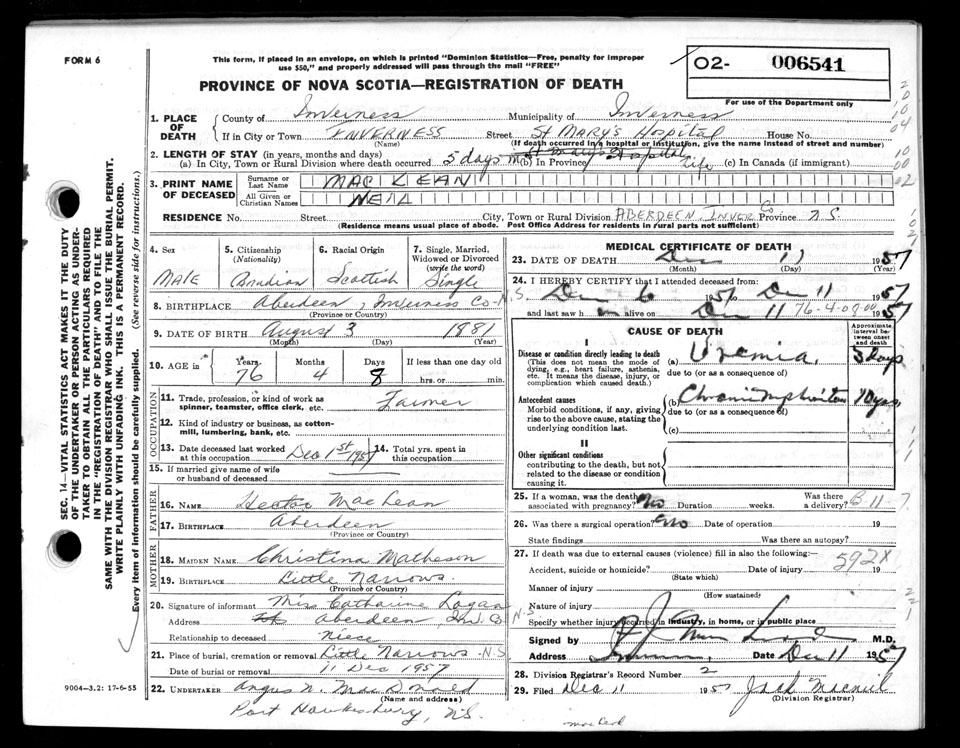 FORM 6
This form, if placed in an envelope, on which is printed "Dominion Statistics—Free, penalty for improper
use $50," and properly addressed will pass through the mail "FREE"
O2- 006541
PROVINCE OF NOVA SCOTIA—REGISTRATION OF DEATH
For use of the Department only
1. PLACE OF DEATH
County of Inverness Municipality of Inverness
If in City or Town INVERNESS Street St MARY'S Hospital House No.
(Name) (If death occurred in a hospital or institution, give the name instead of street and number)
2. LENGTH OF STAY (in years, months and days) St Mary's Hospital
(a) In City, Town or Rural Division where death occurred 5 days (b) In Province Life (c) In Canada (if immigrant)
3. PRINT NAME OF DECEASED
Surname or Last Name MAC LEAN
All Given or Christian Names NEIL
RESIDENCE No. Street City, Town or Rural Division ABERDEEN, INVER Co Province N.S.
(Residence means usual place of abode. Post Office Address for residents in rural parts not sufficient)
4. Sex MALE
5. Citizenship (Nationality) Canadian
6. Racial Origin Scottish
7. Single, Married, Widowed or Divorced (write the word) Single
8. BIRTHPLACE Aberdeen, Inverness Co- N.S.
(Province or Country)
9. DATE OF BIRTH August 3 1881
(Month) (Day) (Year)
10. AGE in Years 76 Months 4 Days 8 If less than one day old hrs. or min.
OCCUPATION
11. Trade, profession, or kind of work as spinner, teamster, office clerk, etc. Farmer
12. Kind of industry or business, as cotton-mill, lumbering, bank, etc.
13. Date deceased last worked at this occupation Dec 1st 1957
14. Total yrs. spent in this occupation
15. If married give name of wife or husband of deceased
FATHER
16. NAME Hector MacLean
17. BIRTHPLACE Aberdeen
(Province or Country)
MOTHER
18. MAIDEN NAME Christina Matheson
19. BIRTHPLACE Little Narrows.
(Province or Country)
20. Signature of informant Miss Catharine Logan
Address Aberdeen Inv. Co N.S
Relationship to deceased niece
21. Place of burial, cremation or removal Little Narrows - N.S
Date of burial or removal 11 Dec 1957
22. UNDERTAKER Angus N. MacDonald
(Name and address)
Port Hawkesbury, N.S.
9004—3.2: 17-6-55
MEDICAL CERTIFICATE OF DEATH
23. DATE OF DEATH Dec 11 1957
(Month) (Day) (Year)
24. I HEREBY CERTIFY that I attended deceased from:
Dec 6 1957 to Dec 11 1957
and last saw h im alive on Dec 11 1957
76-4-08-00
CAUSE OF DEATH
Approximate interval between onset and death
I
Disease or condition directly leading to death
(This does not mean the mode of dying, e.g., heart failure, asthenia, etc. It means the disease, injury, or complication which caused death.)
(a) Uremia 5 days
due to (or as a consequence of)
Antecedent causes
Morbid conditions, if any, giving rise to the above cause, stating the underlying condition last.
(b) Chronic Nephritis 10 yrs
due to (or as a consequence of)
(c)
II
Other significant conditions
contributing to the death, but not related to the disease or condition causing it.
25. If a woman, was the death associated with pregnancy? No Duration weeks. Was there a delivery? B-11-7
26. Was there a surgical operation? No Date of operation 19
State findings Was there an autopsy?
27. If death was due to external causes (violence) fill in also the following:—
592X
Accident, suicide or homicide? Date of injury 19
(State which)
Manner of injury
(How sustained)
Nature of injury
Specify whether injury occurred in industry, in home, or in public place
Signed by M.D.
Address Date Dec 11 1957
28. Division Registrar's Record Number 2
29. Filed Dec 11 1957 Jack Macneil
(Division Registrar)
SEC. 14—VITAL STATISTICS ACT MAKES IT THE DUTY
OF THE UNDERTAKER OR PERSON ACTING AS UNDER-
TAKER TO OBTAIN ALL THE PARTICULARS REQUIRED
IN THE "REGISTRATION OF DEATH" AND TO FILE THE
SAME WITH THE DIVISION REGISTRAR WHO SHALL ISSUE THE BURIAL PERMIT.
WRITE PLAINLY WITH UNFADING INK. THIS IS A PERMANENT RECORD.
Every item of information should be carefully supplied. (See reverse side for instructions.)